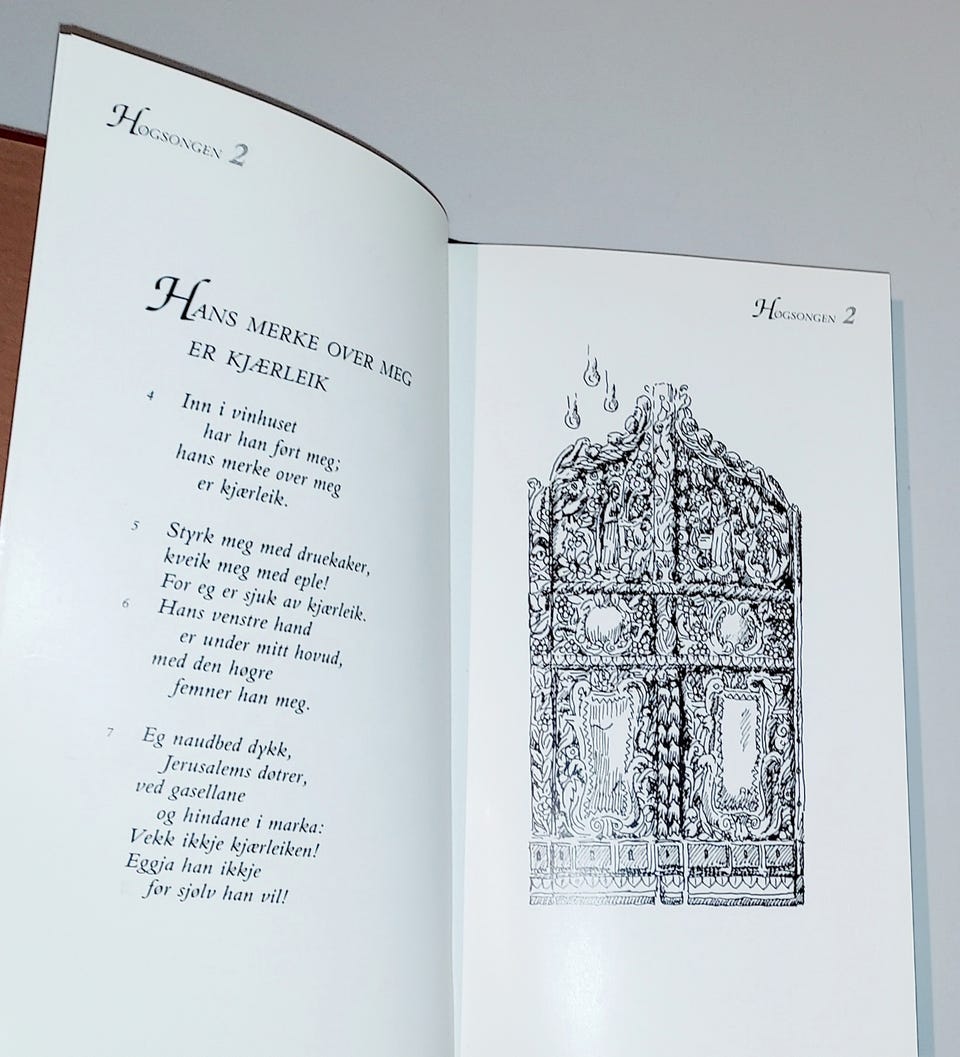 HØGSONGEN 2
HANS MERKE OVER MEG
ER KJÆRLEIK
4 Inn i vinhuset
har han ført meg;
hans merke over meg
er kjærleik.
5 Styrk meg med druekaker,
kveik meg med eple!
For eg er sjuk av kjærleik.
6 Hans venstre hand
er under mitt hovud,
med den høgre
femner han meg.
7 Eg naudbed dykk,
Jerusalems døtrer,
ved gasellane
og hindane i marka:
Vekk ikkje kjærleiken!
Eggja han ikkje
før sjølv han vil!
HØGSONGEN 2